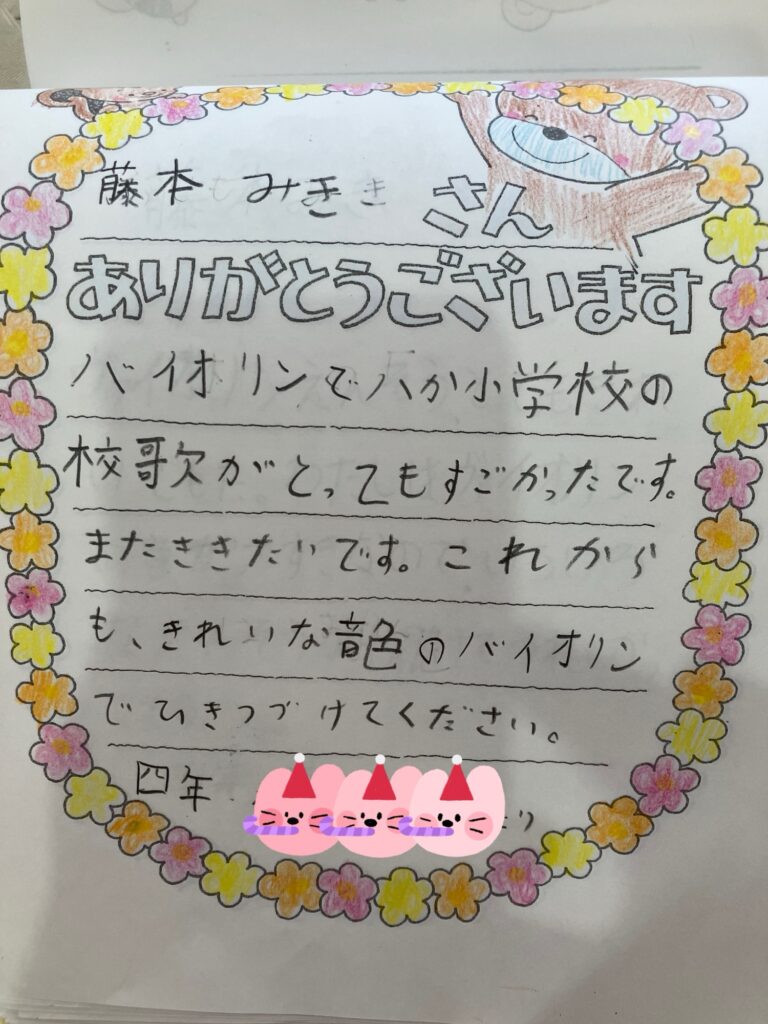 藤本 みき さん
ありがとうございます
バイオリンで八か小学校の
校歌がとってもすごかったです。
またききたいです。これから
も、きれいな音色のバイオリン
でひきつづけてください。
四年
より